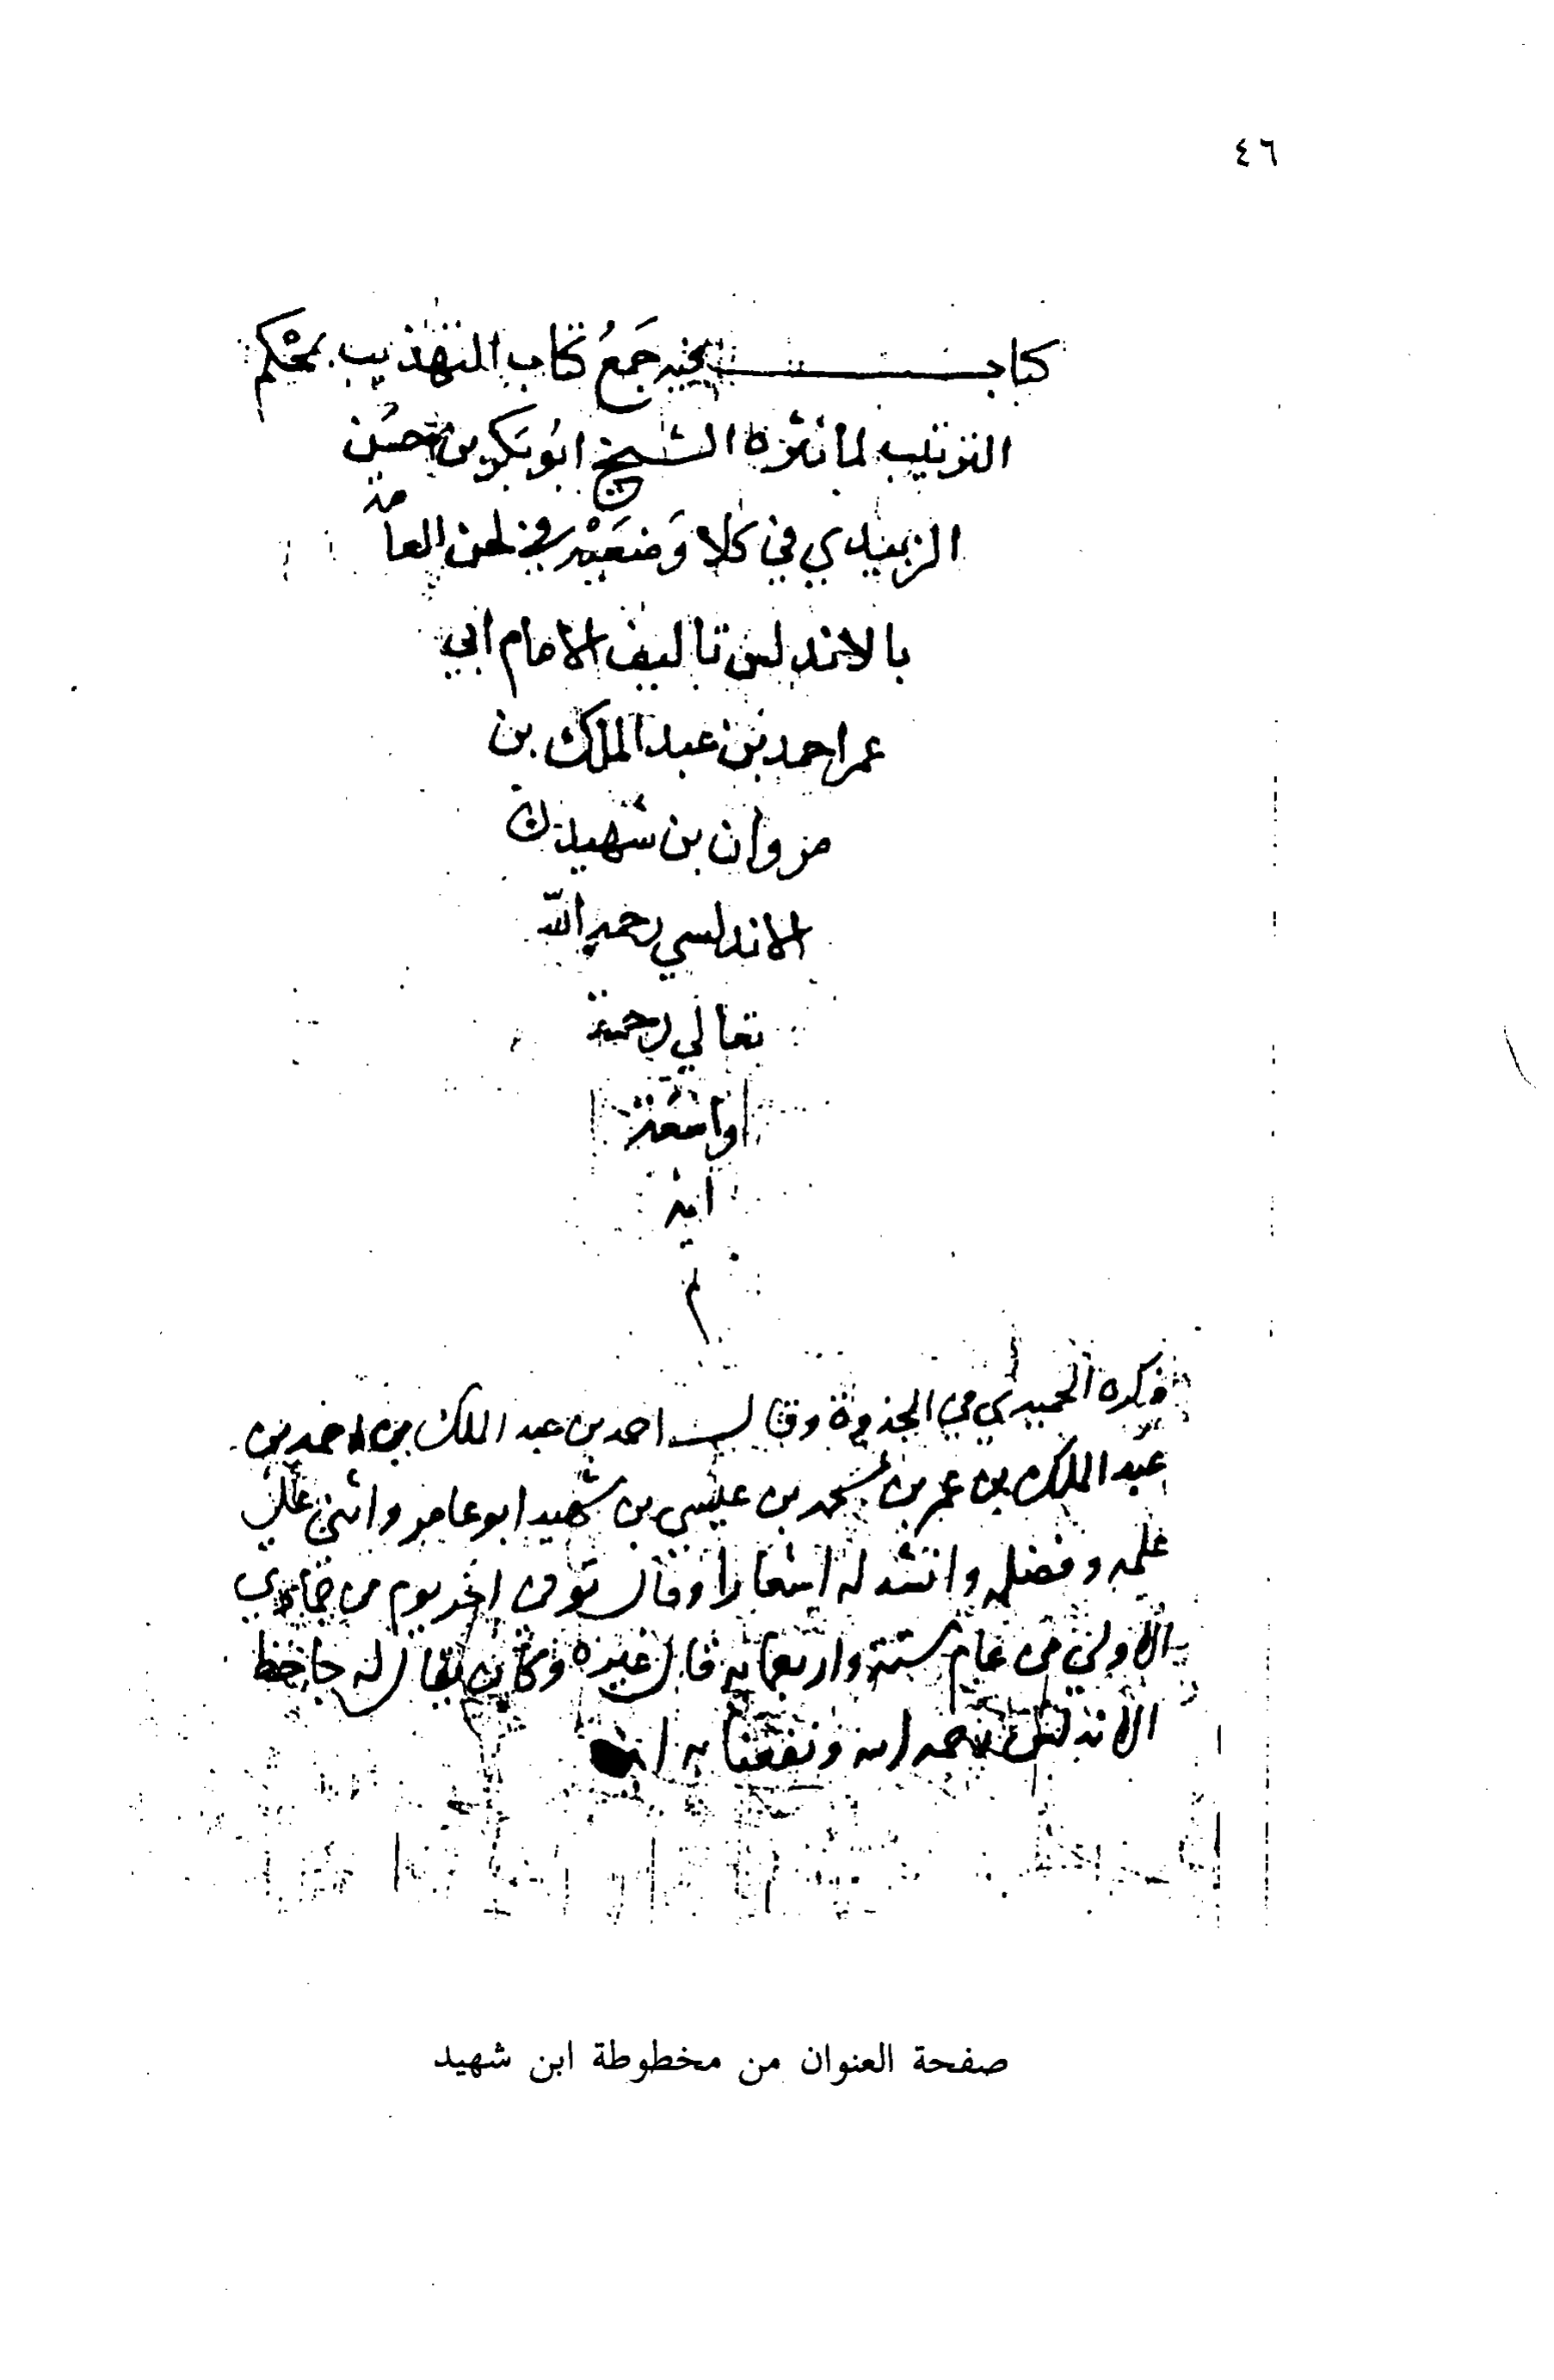 ٤٦
كتاب فيه جَمعُ كتاب التهذيب بمحْكم
الترتيب لما نثره الشيخ ابو بكر بن حسن
الزبيدي في كلا وَضعَيْه في لحن العامة
بالاندلس تاليف الامام ابي
عمر احمد بن عبد الملك بن
مروان بن شهيد
الاندلسي رحمه الله
تعالي رحمة
واسعة
امين
م
ذكره الحميدي في الجذوة وقال احمد بن عبد الملك بن احمد بن
عبد الملك بن عمر بن محمد بن عيسى بن شهيد ابو عامر واثنى على
علمه وفضله وانشد له اشعارا وقال توفى اخر يوم من جمادي
الاولى من عام ستة واربعمايه قال غيره وكان يقال له جاحظ
الاندلس رحمه الله ونفعنا به
صفحة العنوان من مخطوطة ابن شهيد